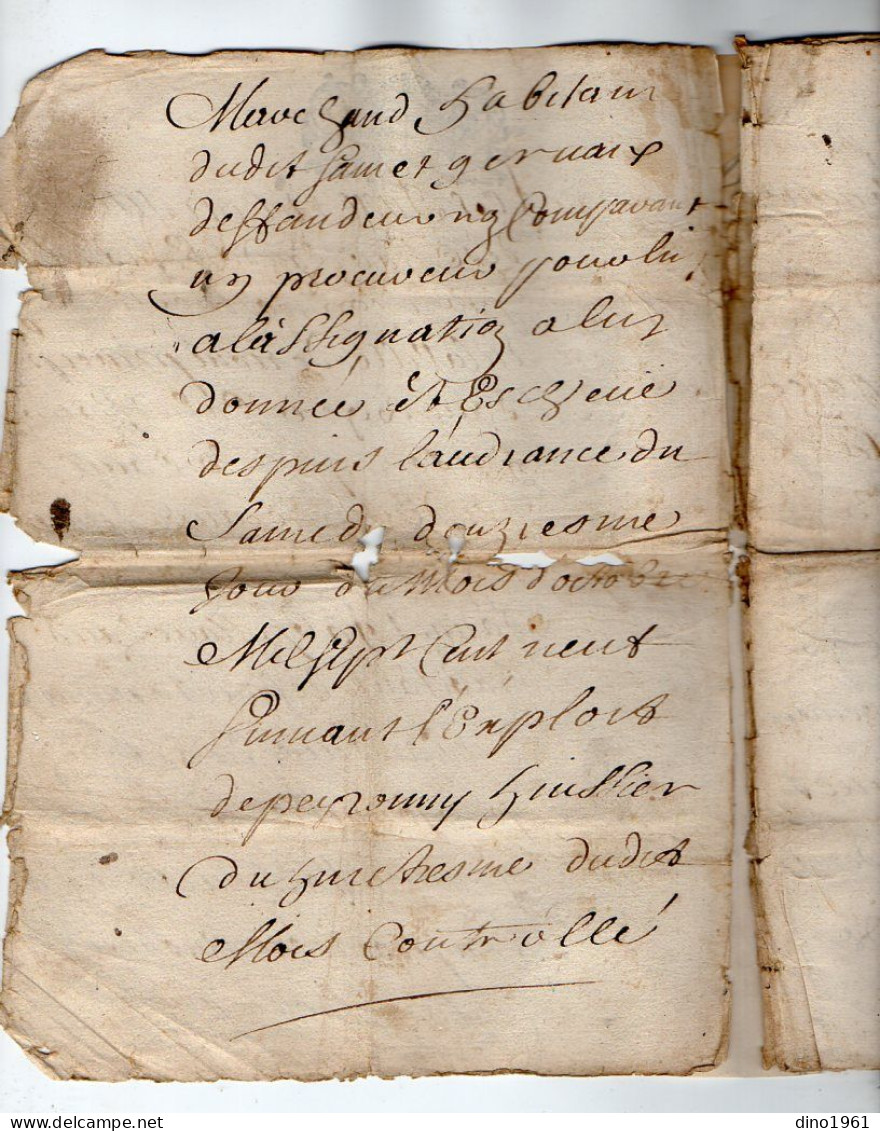 Marchand habitant
dudit sainct gervaix
deffandeur no comparant
ny procureur pour luy
a lassignation a luy
donnée et Escheüe
despuis laudiance du
Samedy douziesme
jour du Mois doctobre
Mil sept Cent neuf
suivant l'Exploit
de peyronny huissier
du huictiesme dudit
Mois Controllé
dino1961